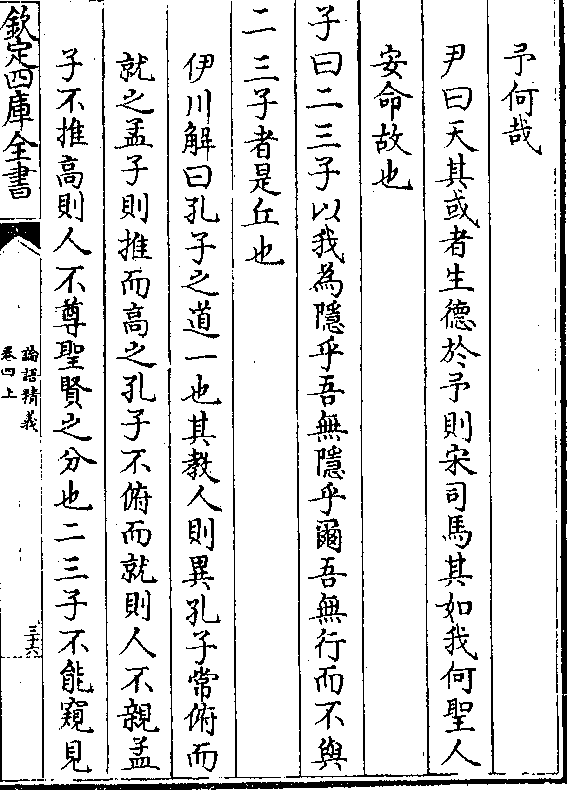 予何哉
尹曰天其或者生德於予則宋司馬其如我何聖人
安命故也
子曰二三子以我為隱乎吾無隱乎爾吾無行而不與
二三子者是丘也
伊川解曰孔子之道一也其教人則異孔子常俯而
就之孟子則推而高之孔子不俯而就則人不親孟
子不推高則人不尊聖賢之分也二三子不能窺見
欽定四庫全書
論語精義
卷四上
三十六